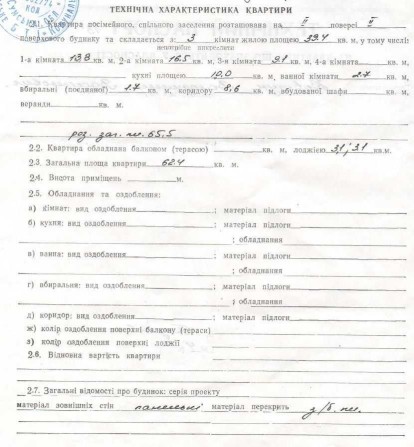 ТЕХНІЧНА ХАРАКТЕРИСТИКА КВАРТИРИ
2.1. Квартира посімейного, спільного заселення розташована на II поверсі II
поверхового будинку та складається з: 3 кімнат жилою площею 39.4 кв. м, у тому числі:
непотрібне викреслити
1-а кімната 13.8 кв. м, 2-а кімната 16.5 кв. м, 3-я кімната 9.1 кв. м, 4-а кімната кв. м,
кухні площею 10.0 кв. м, ванної кімнати 2.7 кв. м,
вбиральні (поєднаної) 1.7 кв. м, коридору 8.6 кв. м, вбудованої шафи кв. м,
веранди кв. м.
роз. заг. пл. 65.5
2.2. Квартира обладнана балконом (терасою) кв. м, лоджією 3.1; 3.1 кв.м.
2.3. Загальна площа квартири 62.4 кв. м.
2.4. Висота приміщень м.
2.5. Обладнання та оздоблення:
а) кімнат: вид оздоблення ; матеріал підлоги
б) кухня: вид оздоблення ; матеріал підлоги
; обладнання
в) ванна: вид оздоблення ; матеріал підлоги
; обладнання
г) вбиральня: вид оздоблення ; матеріал підлоги
; обладнання
д) коридор: вид оздоблення ; матеріал підлоги
ж) колір оздоблення поверхні балкону (тераси)
з) колір оздоблення поверхні лоджії
2.6. Відновна вартість квартири
2.7. Загальні відомості про будинок: серія проекту
матеріал зовнішніх стін панельні матеріал перекрить з/б. пл.